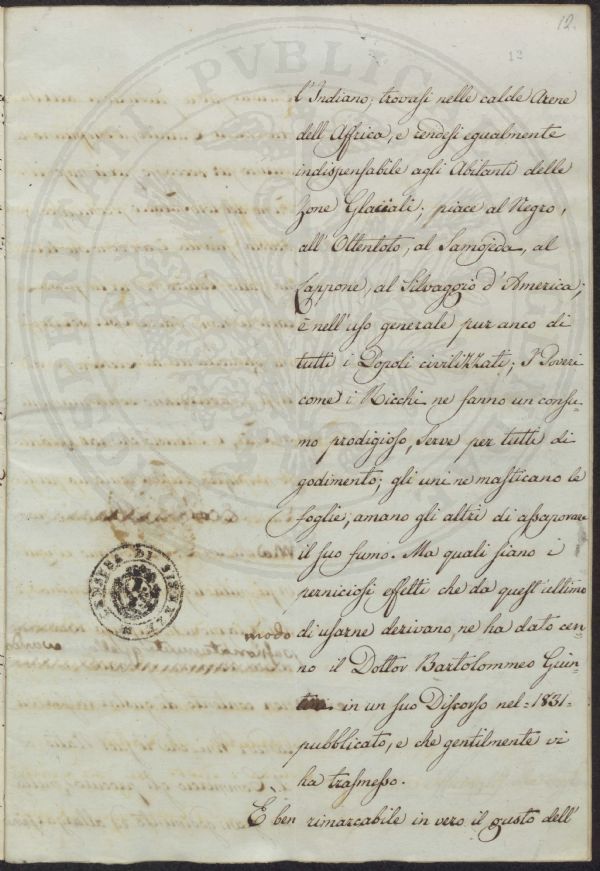 12.
12
l'Indiano; trovasi nelle calde Arene
dell'Affrica, e rendesi egualmente
indispensabile agli Abitanti delle
Zone Glaciali; piace al Negro,
all'Ottentoto, al Samojeda, al
Lappone, al Silvaggio d'America;
è nell'uso generale pur anco di
tutti i Popoli civilizzati; I Poveri
come i Ricchi ne fanno un consu-
mo prodigioso, serve per tutti di
godimento; gli uni ne masticano le
foglie; amano gli altri di assaporare
il suo fumo. Ma quali siano i
perniciosi effetti che da quest'ultimo
modo di usarne derivano, ne ha dato cen-
no il Dottor Bartolommeo Giun-
in un suo Discorso nel=1831=
pubblicato, e che gentilmente vi
ha trasmesso.
È ben rimarcabile in vero il gusto dell'
PVBLICAE